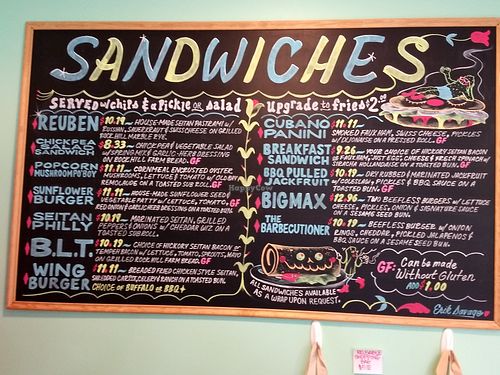 SANDWICHES
SERVED w/chips & a Pickle or salad
Upgrade to fries $2.00
REUBEN $10.19~ HOUSE-MADE SEITAN PASTRAMI w/
RUSSIAN, SAUERKRAUT & SWISS CHEESE ON GRILLED
ROCK HILL MARBLE RYE.
CHICKPEA SANDWICH $8.33~ CHICKPEA & VEGETABLE SALAD
W/GREENS, HERB GARLIC-MAYO DRESSING
ON ROCK HILL FARM BREAD. GF
POPCORN MUSHROOM PO'BOY $11.11~ CORNMEAL ENCRUSTED OYSTER
MUSHROOMS, LETTUCE & TOMATO W/ COLESLAW
REMOULADE ON A TOASTED SUB ROLL. GF
SUNFLOWER BURGER $11.11~ HOUSE-MADE SUNFLOWER SEED &
VEGETABLE PATTY w/ LETTUCE, TOMATO,
RED ONION & GARLIC HERB DRESSING ON A TOASTED BUN. GF
SEITAN PHILLY $10.19~ MARINATED SEITAN, GRILLED
PEPPERS & ONIONS w/ CHEDDAR WIZ ON A
TOASTED SUB ROLL.
B.L.T. $10.19~ CHOICE OF HICKORY SEITAN BACON OR
TEMPEH BACON w/ LETTUCE, TOMATO, SPROUTS, MAYO
ON GRILLED ROCK HILL FARM BREAD. GF
WING BURGER $11.11~ BREADED FRIED CHICKEN STYLE SEITAN,
SHREDDED CARROTS, CELERY & RANCH ON A TOASTED BUN.
CHOICE OF BUFFALO or BBQ.
CUBANO PANINI $11.11~
SMOKED FAUX HAM, SWISS CHEESE, PICKLES
W/ ON A PRESSED ROLL. GF
BREAKFAST SANDWICH $9.26~ YOUR CHOICE OF HICKORY SEITAN BACON
OR FAUX HAM, JUST EGG, CHEESE & FRESH SPINACH w/
HOLLANDAISE ON A TOASTED BUN. GF
BBQ PULLED JACKFRUIT $10.19~ DRY RUBBED & MARINATED JACKFRUIT
w/ COLESLAW, PICKLES & BBQ SAUCE ON A
TOASTED BUN. GF
BIGMAX $12.96~ TWO BEEFLESS BURGERS w/ LETTUCE
CHEESE, PICKLES, ONION & SIGNATURE SAUCE
ON A SESAME SEED BUN.
THE BARBECUTIONER $10.19~ BEEFLESS BURGER w/ ONION
RINGS, CHEDDAR, PICKLED JALAPENOS &
BBQ SAUCE ON A SESAME SEED BUN.
ALL SANDWICHES AVAILABLE
AS A WRAP UPON REQUEST.
GF: Can be made
Without Gluten
ADD $1.00
Erik Savage
HappyCow
REUSABLE
BAG